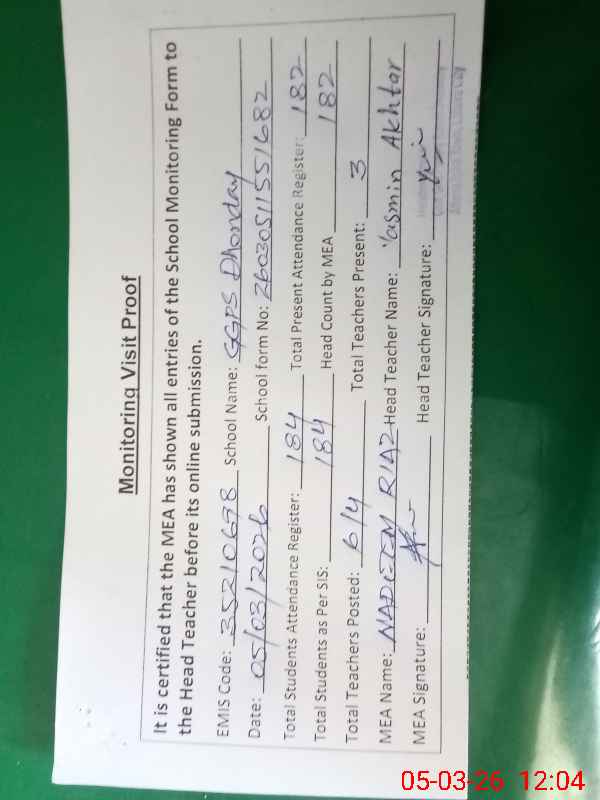 Monitoring Visit Proof
It is certified that the MEA has shown all entries of the School Monitoring Form to
the Head Teacher before its online submission.
EMIS Code: 35210678 School Name: GGPS Dhonday
Date: 05/03/2026 School form No: 260305115551682
Total Students Attendance Register: 184 Total Present Attendance Register: 182
Total Students as Per SIS: 184 Head Count by MEA 182
Total Teachers Posted: 6/4 Total Teachers Present: 3
MEA Name: NADEEM RIAZ Head Teacher Name: Yasmin Akhtar
MEA Signature: Head Teacher Signature:
05-03-26 12:04